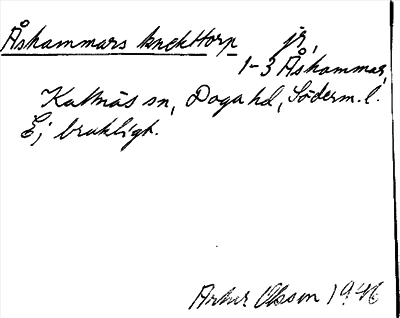 Åskammars knekttorp jr,
1-3 Åskammar,
Kattnäs sn, Daga hd, Söderm. l.
Ej brukligt.
Artur Olsson 1946